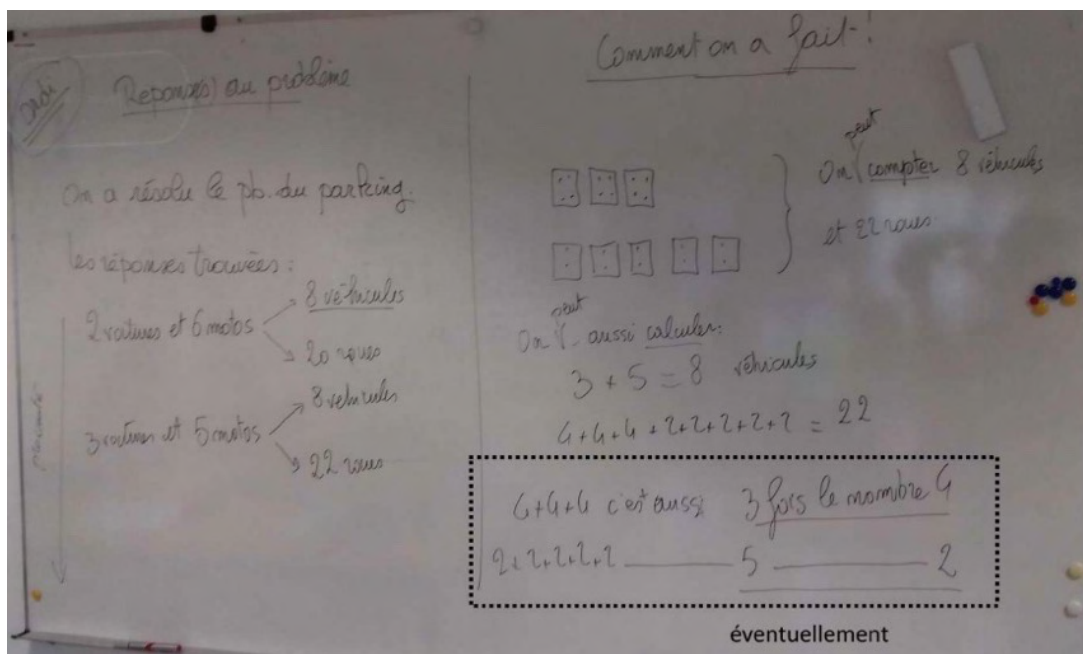 ordi
Réponse(s) au problème
On a résolu le pb. du parking.
les réponses trouvées :
2 voitures et 6 motos
8 véhicules
20 roues
3 voitures et 5 motos
8 vehicules
22 roues
Comment on a fait !
On peut compter 8 véhicules
et 22 roues.
On peut aussi calculer :
3 + 5 = 8 véhicules
4+4+4+2+2+2+2+2 = 22
4+4+4 c'est aussi 3 fois le nombre 4
2+2+2+2+2 ——— 5 ——— 2
éventuellement